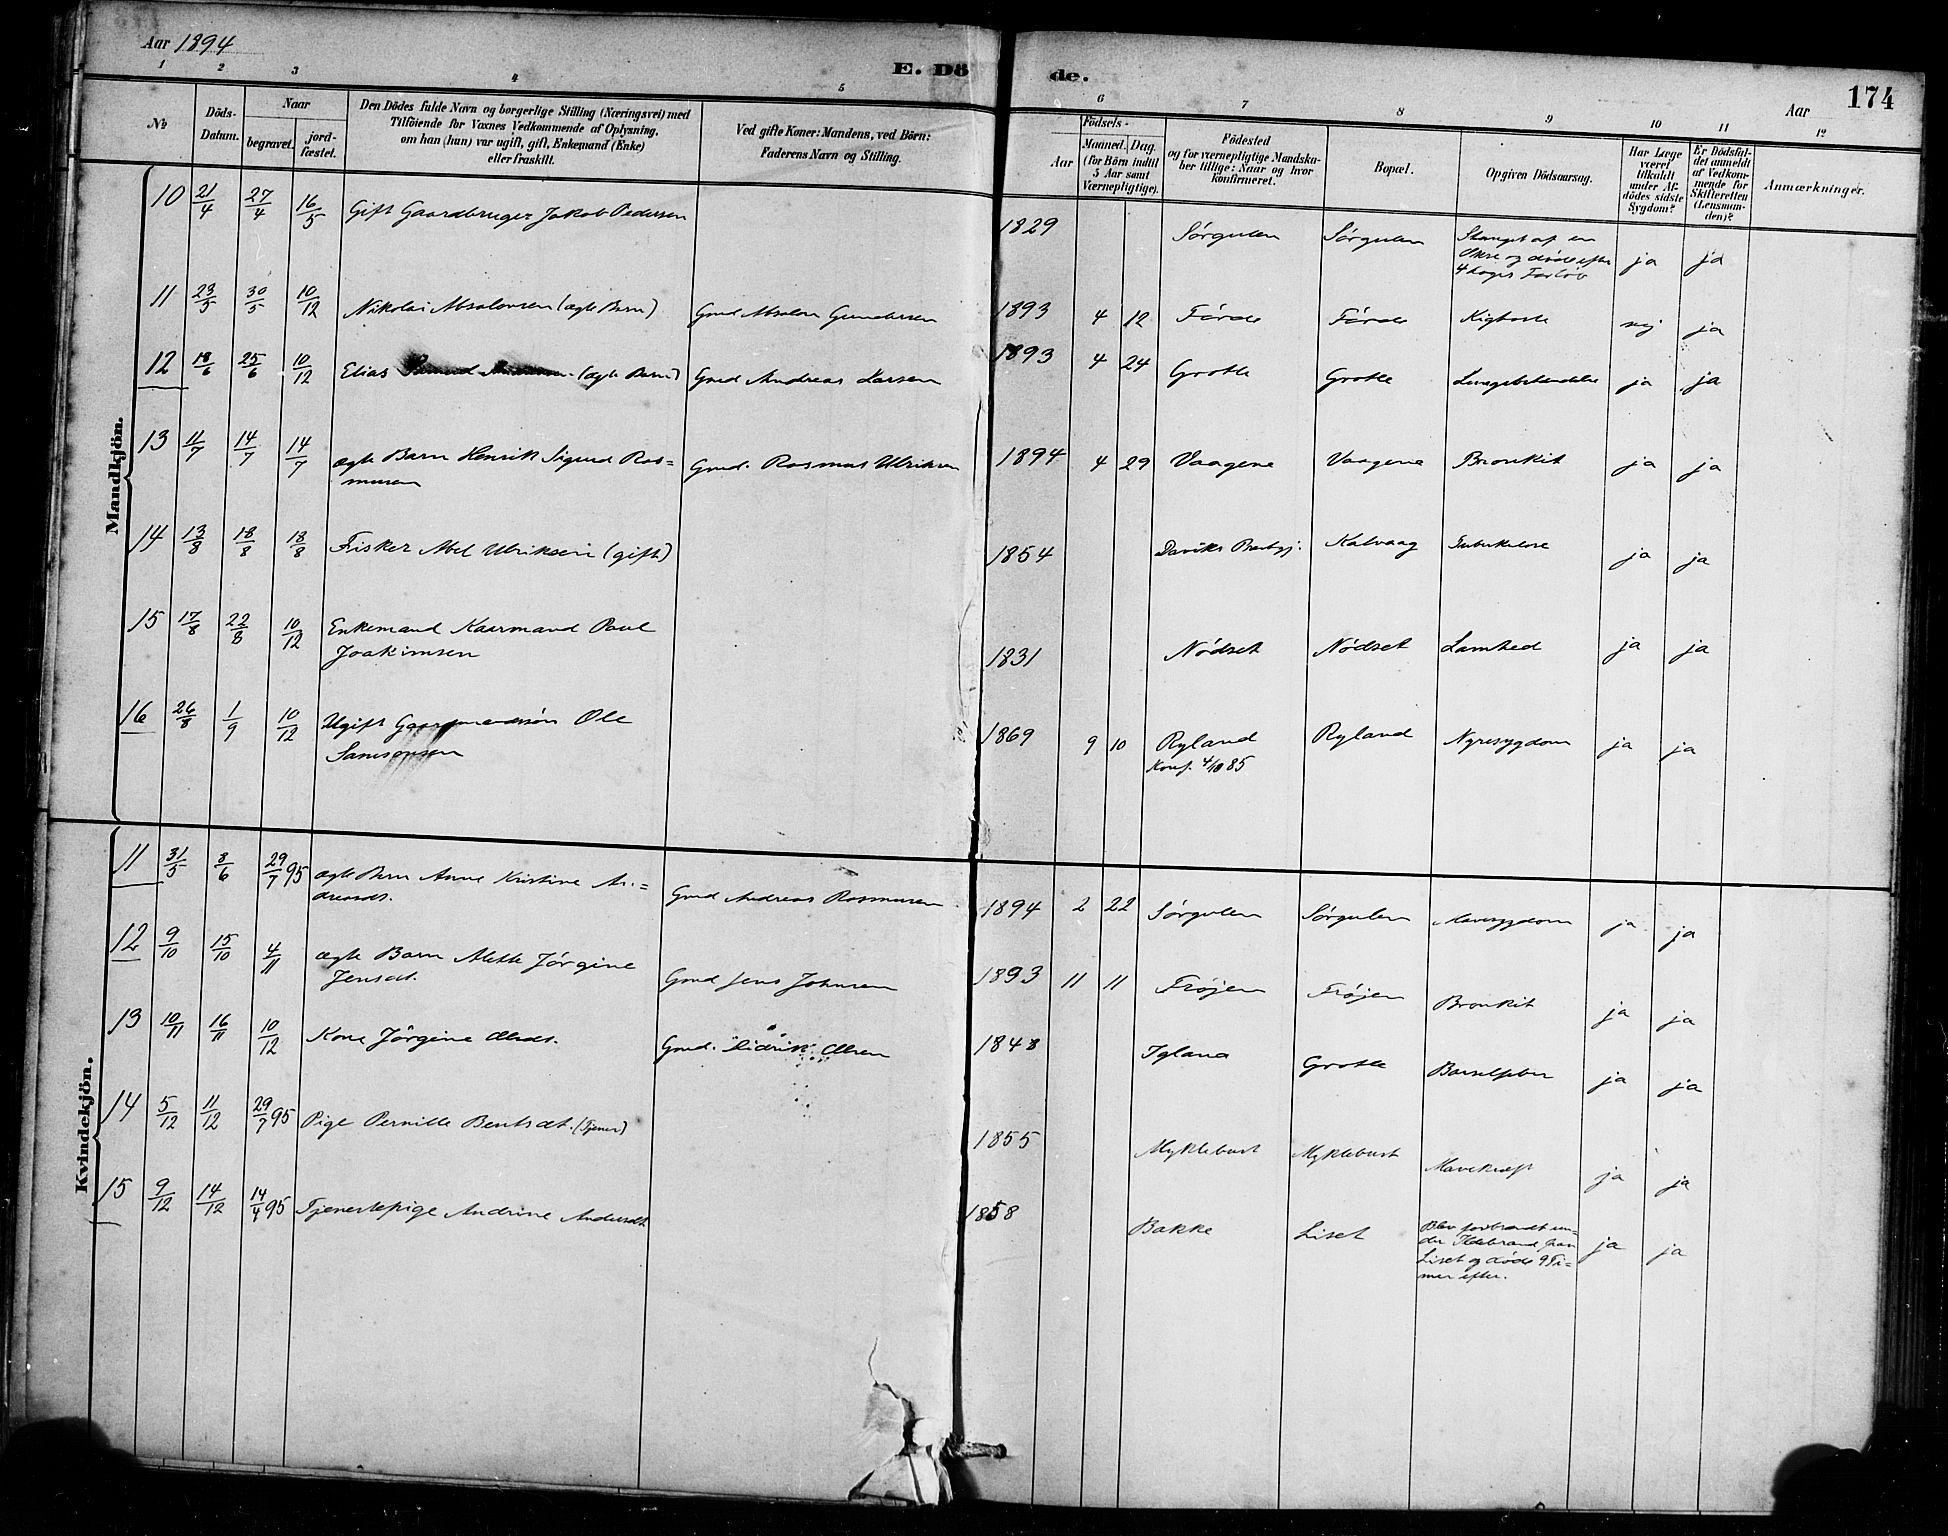 Aar 1894
E. Dö de.
Aar
174
1 2 3 4 5 6 7 8 9 10 11 12
No
Döds-Datum.
Naar
begravet.
jord-fæstet.
Den Dödes fulde Navn og borgerlige Stilling (Næringsvei) med
Tilföiende for Voxnes Vedkommende af Oplysning,
om han (hun) var ugift, gift, Enkemand (Enke)
eller fraskilt.
Ved gifte Koner: Mandens, ved Börn:
Faderens Navn og Stilling.
Födsels-
Aar
Maaned. Dag.
(for Börn indtil
5 Aar samt
Værnepligtige).
Födested
og for værnepligtige Mandska-
ber tillige: Naar og hvor
konfirmeret.
Bopæl.
Opgiven Dödsaarsag.
Har Læge
været
tilkaldt
under Af-
dödes sidste
Sygdom?
Er Dödsfal-
det anmeldt
af Vedkom-
mende for
Skifteretten
(Lensman-
den)?
Anmærkninger.
Mandkjön.
10 21/4 27/4 16/5 Gift Gaardbruger Jakob Pedersen 1829 Sørgulen Sørgulen Stanget af en
Okse og døde efter
4 Dages Forløb ja ja
11 23/5 30/5 10/12 Nikolai Absalonsen (ægte Barn) Gmd Absalon Gundersen 1893 4 12 Førde Førde Kighoste nej ja
12 18/6 25/6 10/12 Elias (ægte Barn) Gmd Andreas Larsen 1893 4 24 Grotle Grotle Lungebetændelse ja ja
13 11/7 14/7 14/7 ægte Barn Henrik Sigurd Ras=
musen Gmd. Rasmus Ulriksen 1894 4 29 Vaagene Vaagene Bronkit ja ja
14 13/8 18/8 18/8 Fisker Abel Ulriksen (gift) 1854 Daviks Præstgj. Kalvaag Tuberkulose ja ja
15 17/8 22/8 10/12 Enkemand Kaarmand Paul
Joakimsen 1831 Nødset Nødset Lamhed ja ja
16 26/8 1/9 10/12 Ugift Gaardmandssøn Ole
Samsonsen 1869 9 10 Ryland
Konf. 4/10 85 Ryland Nyresygdom ja ja
Kvindekjön.
11 31/5 8/6 29/7 95 ægte Barn Anne Kristine An=
dreasdt. Gmd Andreas Rasmusen 1894 2 22 Sørgulen Sørgulen Mavesygdom ja ja
12 9/10 15/10 4/11 ægte Barn Alette Jørgine
Jensdt. Gmd Jens Johnsen 1893 11 11 Frøjen Frøjen Bronkit ja ja
13 10/11 16/11 10/12 Kone Jørgine Olsdt. Gmd. Didrik Olsen 1848 Igland Grotle Barselfeber ja ja
14 5/12 11/12 29/7 95 Pige Pernille Bentsdt. (Tjener) 1855 Myklebust Myklebust Mavekræft ja ja
15 9/12 14/12 14/4 95 Tjenestepige Andrine Andersdt 1858 Bakke Liset Blev forbrændt un=
der Ildebrand paa
Liset og døde 9 Ti=
mer efter. ja ja